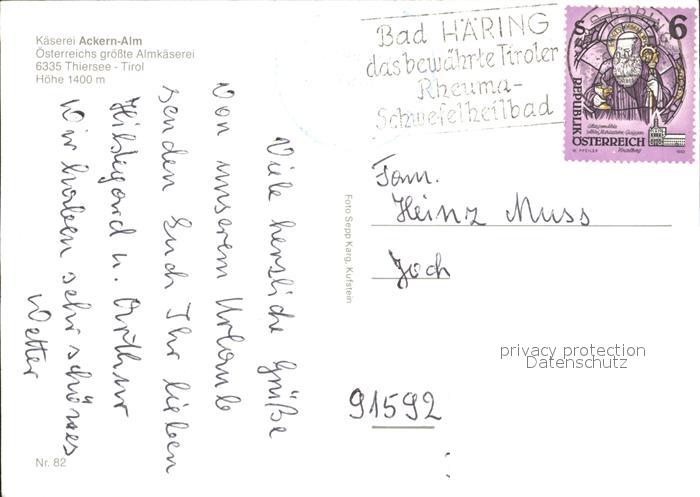 Käserei Ackern-Alm
Österreichs größte Almkäserei
6335 Thiersee - Tirol
Höhe 1400 m
Bad HÄRING
das bewährte Tiroler
Rheuma-
Schwefelheilbad
S 6
REPUBLIK
ÖSTERREICH
Viele herzliche Grüße
Von unserem Urlaub
senden Euch Ihr lieben
Hildegard u. Arthur
Wir haben sehr schönes
Wetter
Foto Sepp Karg, Kufstein
Fam.
Heinz Muss
Joch
privacy protection
Datenschutz
91592
Nr. 82